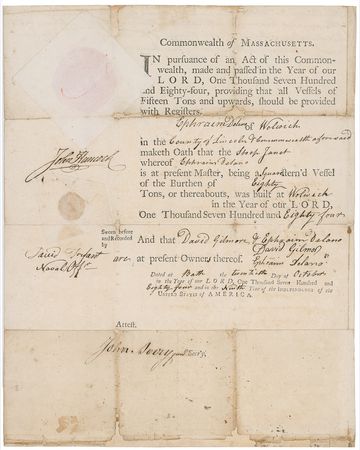 Commonwealth of MASSACHUSETTS.
IN pursuance of an Act of this Common-
wealth, made and passed in the Year of our
LORD, One Thousand Seven Hundred
and Eighty-four, providing that all Vessels of
Fifteen Tons and upwards, should be provided
with Registers.
Ephraim Delano of Wolwich
in the County of Lincoln & Commonwealth aforesaid
maketh Oath that the Sloop Janet
whereof Ephraim Delano
is at present Master, being a Square stern'd Vessel
of the Burthen of Eighty
Tons, or thereabouts, was built at Wolwich
in the Year of our LORD,
One Thousand Seven Hundred and Eighty four
John Hancock
Sworn before
and Recorded
by
Naval Offr
And that David Gilmore & Ephraim Delano
David Gilmor
are at present Owners thereof. Ephraim Delano
Dated at Bath the twentieth Day of October
in the Year of our LORD, One Thousand Seven Hundred and
Eighty four and in the Ninth Year of the INDEPENDENCE of the
UNITED STATES of AMERICA.
Attest.
John Avery jun Secr'y.